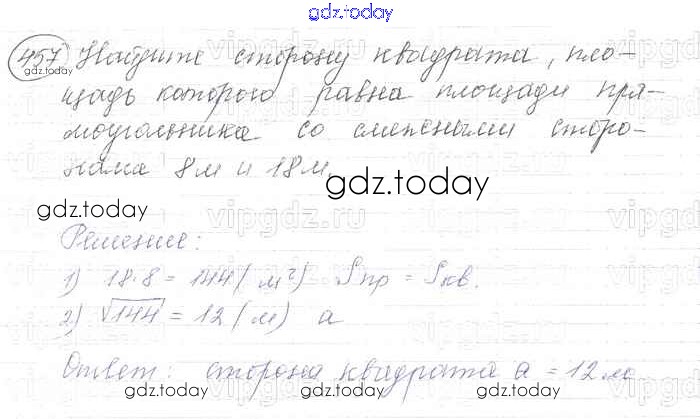 gdz.today
457 Найдите сторону квадрата, пло-
gdz.today
щадь которого равна площади пря-
моугольника со смежными сторо-
нами 8м и 18м.
gdz.today
gdz.today
vipgdz.ru
Решение:
1) 18·8 = 144 (м²) Sпр = Sкв.
2) √144 = 12 (м) а
Ответ: сторона квадрата а = 12м
gdz.today gdz.today gdz.today